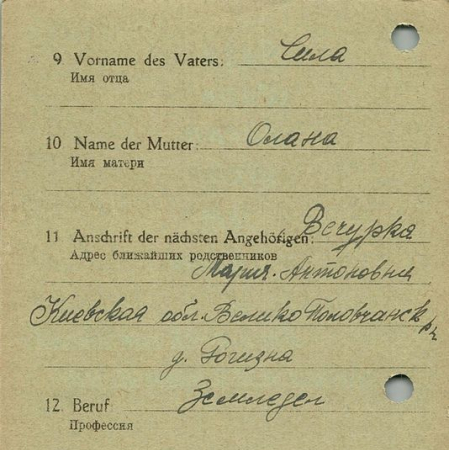 9 Vorname des Vaters: Сила
Имя отца
10 Name der Mutter: Олана
Имя матери
11 Anschrift der nächsten Angehörigen: Вечурка
Адрес ближайших родственников
Мария Антоновна
Киевская обл. Велико Половчанск р-н
д. Рогизна
12. Beruf Земледел
Профессия